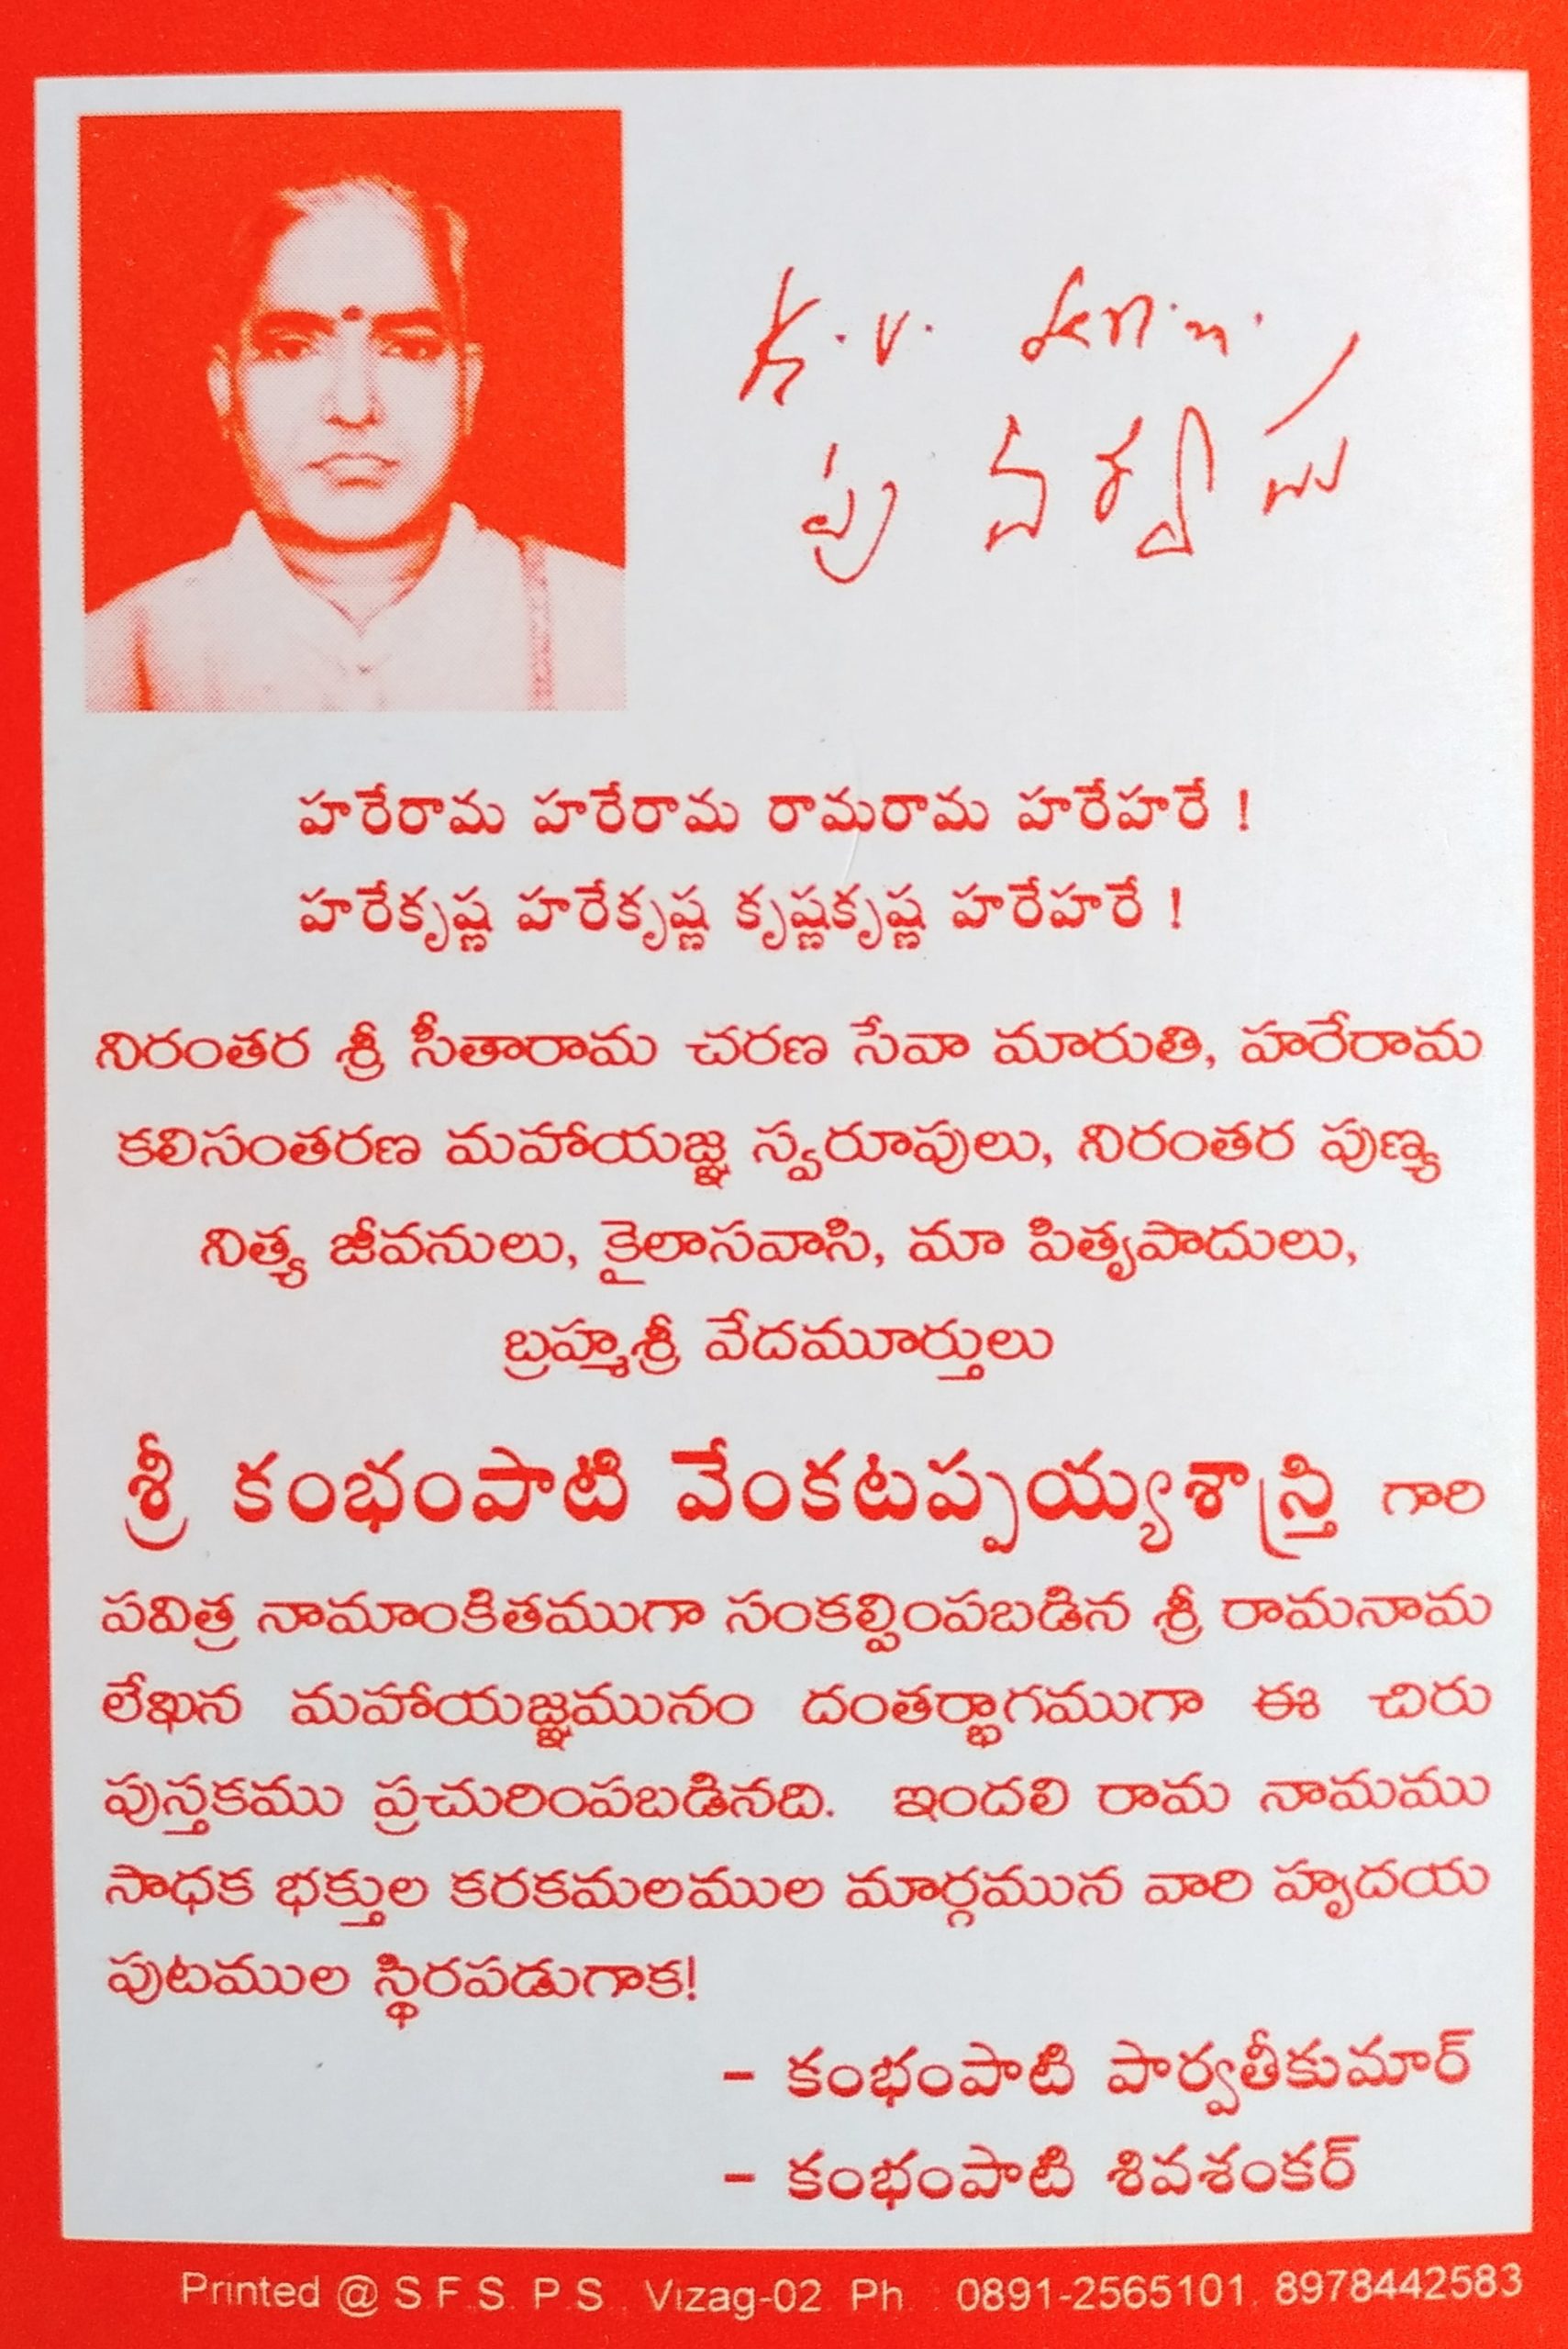 K. V.
హరేరామ హరేరామ రామరామ హరేహరే !
హరేకృష్ణ హరేకృష్ణ కృష్ణకృష్ణ హరేహరే !
నిరంతర శ్రీ సీతారామ చరణ సేవా మారుతి, హరేరామ
కలిసంతరణ మహాయజ్ఞ స్వరూపులు, నిరంతర పుణ్య
నిత్య జీవనులు, కైలాసవాసి, మా పితృపాదులు,
బ్రహ్మశ్రీ వేదమూర్తులు
శ్రీ కంభంపాటి వేంకటప్పయ్యశాస్త్రి గారి
పవిత్ర నామాంకితముగా సంకల్పింపబడిన శ్రీ రామనామ
లేఖన మహాయజ్ఞమునం దంతర్భాగముగా ఈ చిరు
పుస్తకము ప్రచురింపబడినది. ఇందలి రామ నామము
సాధక భక్తుల కరకమలముల మార్గమున వారి హృదయ
పుటముల స్థిరపడుగాక!
- కంభంపాటి పార్వతీకుమార్
- కంభంపాటి శివశంకర్
Printed @ S.F.S. P.S., Vizag-02. Ph. : 0891-2565101, 8978442583